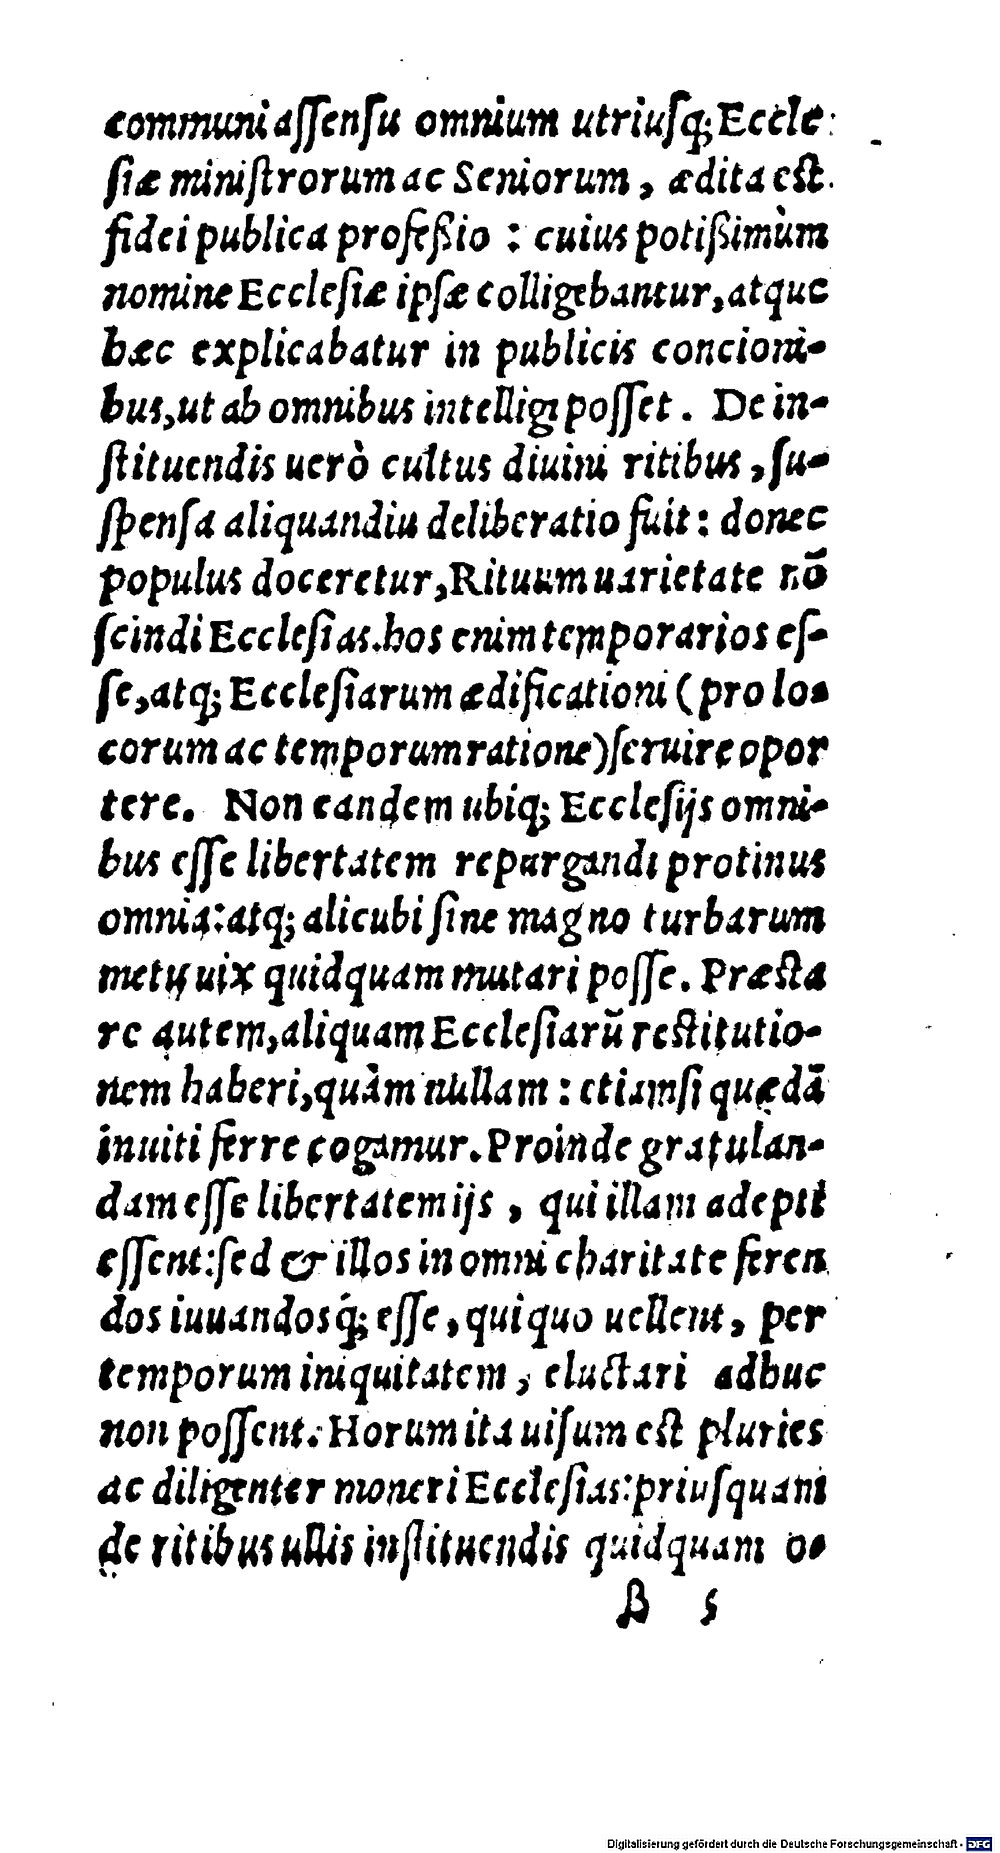 communi aſſenſu omnium utriuſq; Eccle-
ſiæ miniſtrorum ac Seniorum, ædita eſt
fidei publica profeßio : cuius potißimùm
nomine Eccleſiæ ipſæ colligebantur, atque
hæc explicabatur in publicis concioni-
bus, ut ab omnibus intelligi poſſet. De in-
ſtituendis uerò cultus diuini ritibus, ſu-
ſpenſa aliquandiu deliberatio fuit: donec
populus doceretur, Rituum uarietate nō
ſcindi Eccleſias. hos enim temporarios eſ-
ſe, atq; Eccleſiarum ædificationi (pro lo-
corum ac temporum ratione) ſeruire opor
tere. Non eandem ubiq; Eccleſijs omni-
bus eſſe libertatem repurgandi protinus
omnia: atq; alicubi ſine magno turbarum
metu uix quidquam mutari poſſe. Præſta
re autem, aliquam Eccleſiarū reſtitutio-
nem haberi, quàm nullam : etiamſi quædā
inuiti ferre cogamur. Proinde gratulan-
dam eſſe libertatem ijs, qui illam adepti
eſſent: ſed & illos in omni charitate feren
dos iuuandosq́; eſſe, qui quo uellent, per
temporum iniquitatem, eluctari adhuc
non poſſent. Horum ita uiſum eſt pluries
ac diligenter moneri Eccleſias: priuſquam
de ritibus ullis inſtituendis quidquam o-
B 5
Digitalisierung gefördert durch die Deutsche Forschungsgemeinschaft - DFG